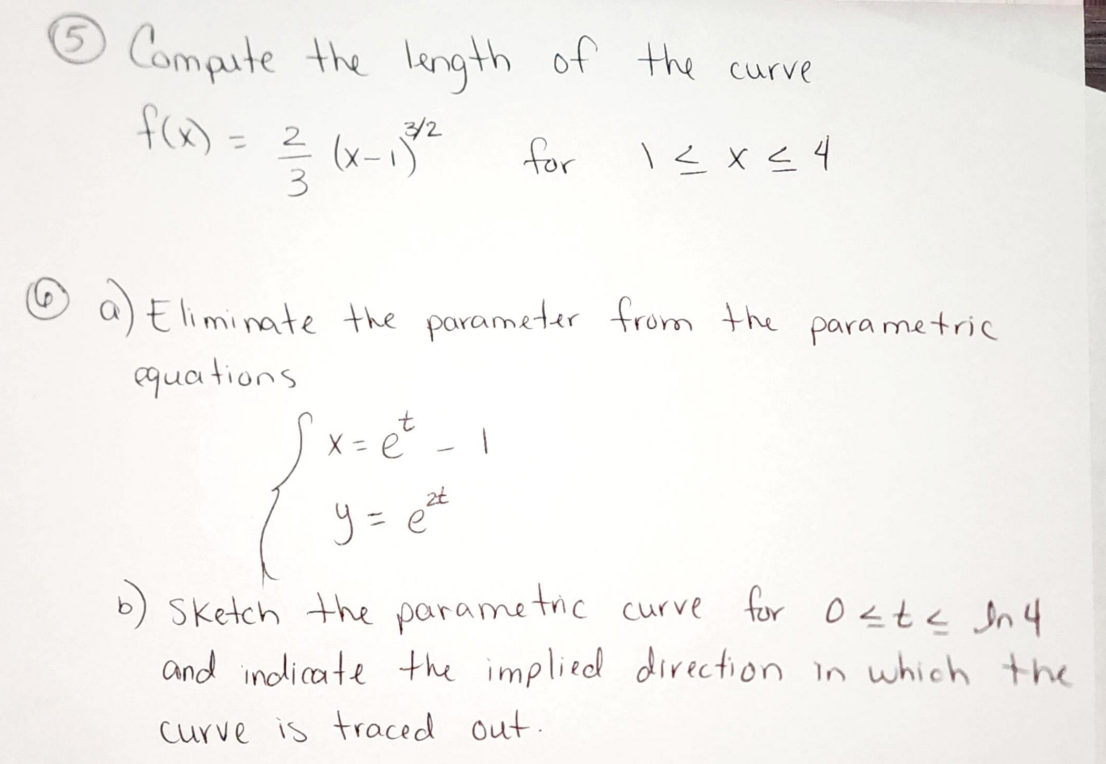 ⑤ Compute the length of the curve
f(x) = 2/3 (x-1)^3/2 for 1 ≤ x ≤ 4
⑥ a) Eliminate the parameter from the parametric
equations
x = e^t - 1
y = e^2t
b) Sketch the parametric curve for 0 ≤ t ≤ ln 4
and indicate the implied direction in which the
curve is traced out.